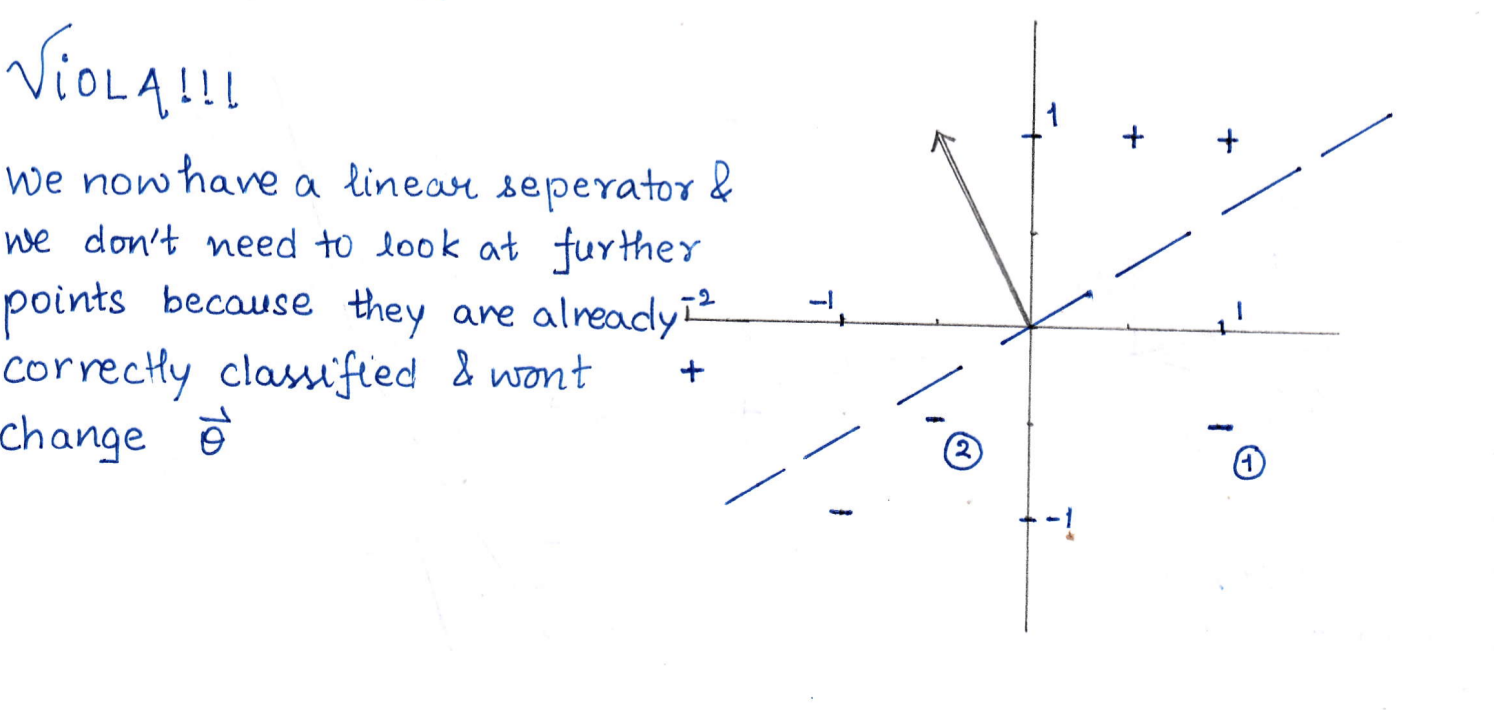 ViOLA!!!
We now have a linear seperator &
we don't need to look at further
points because they are already
correctly classified & wont
change θ⃗
1
+ +
-2 -1 1
+
-
②
-
①
-
-1